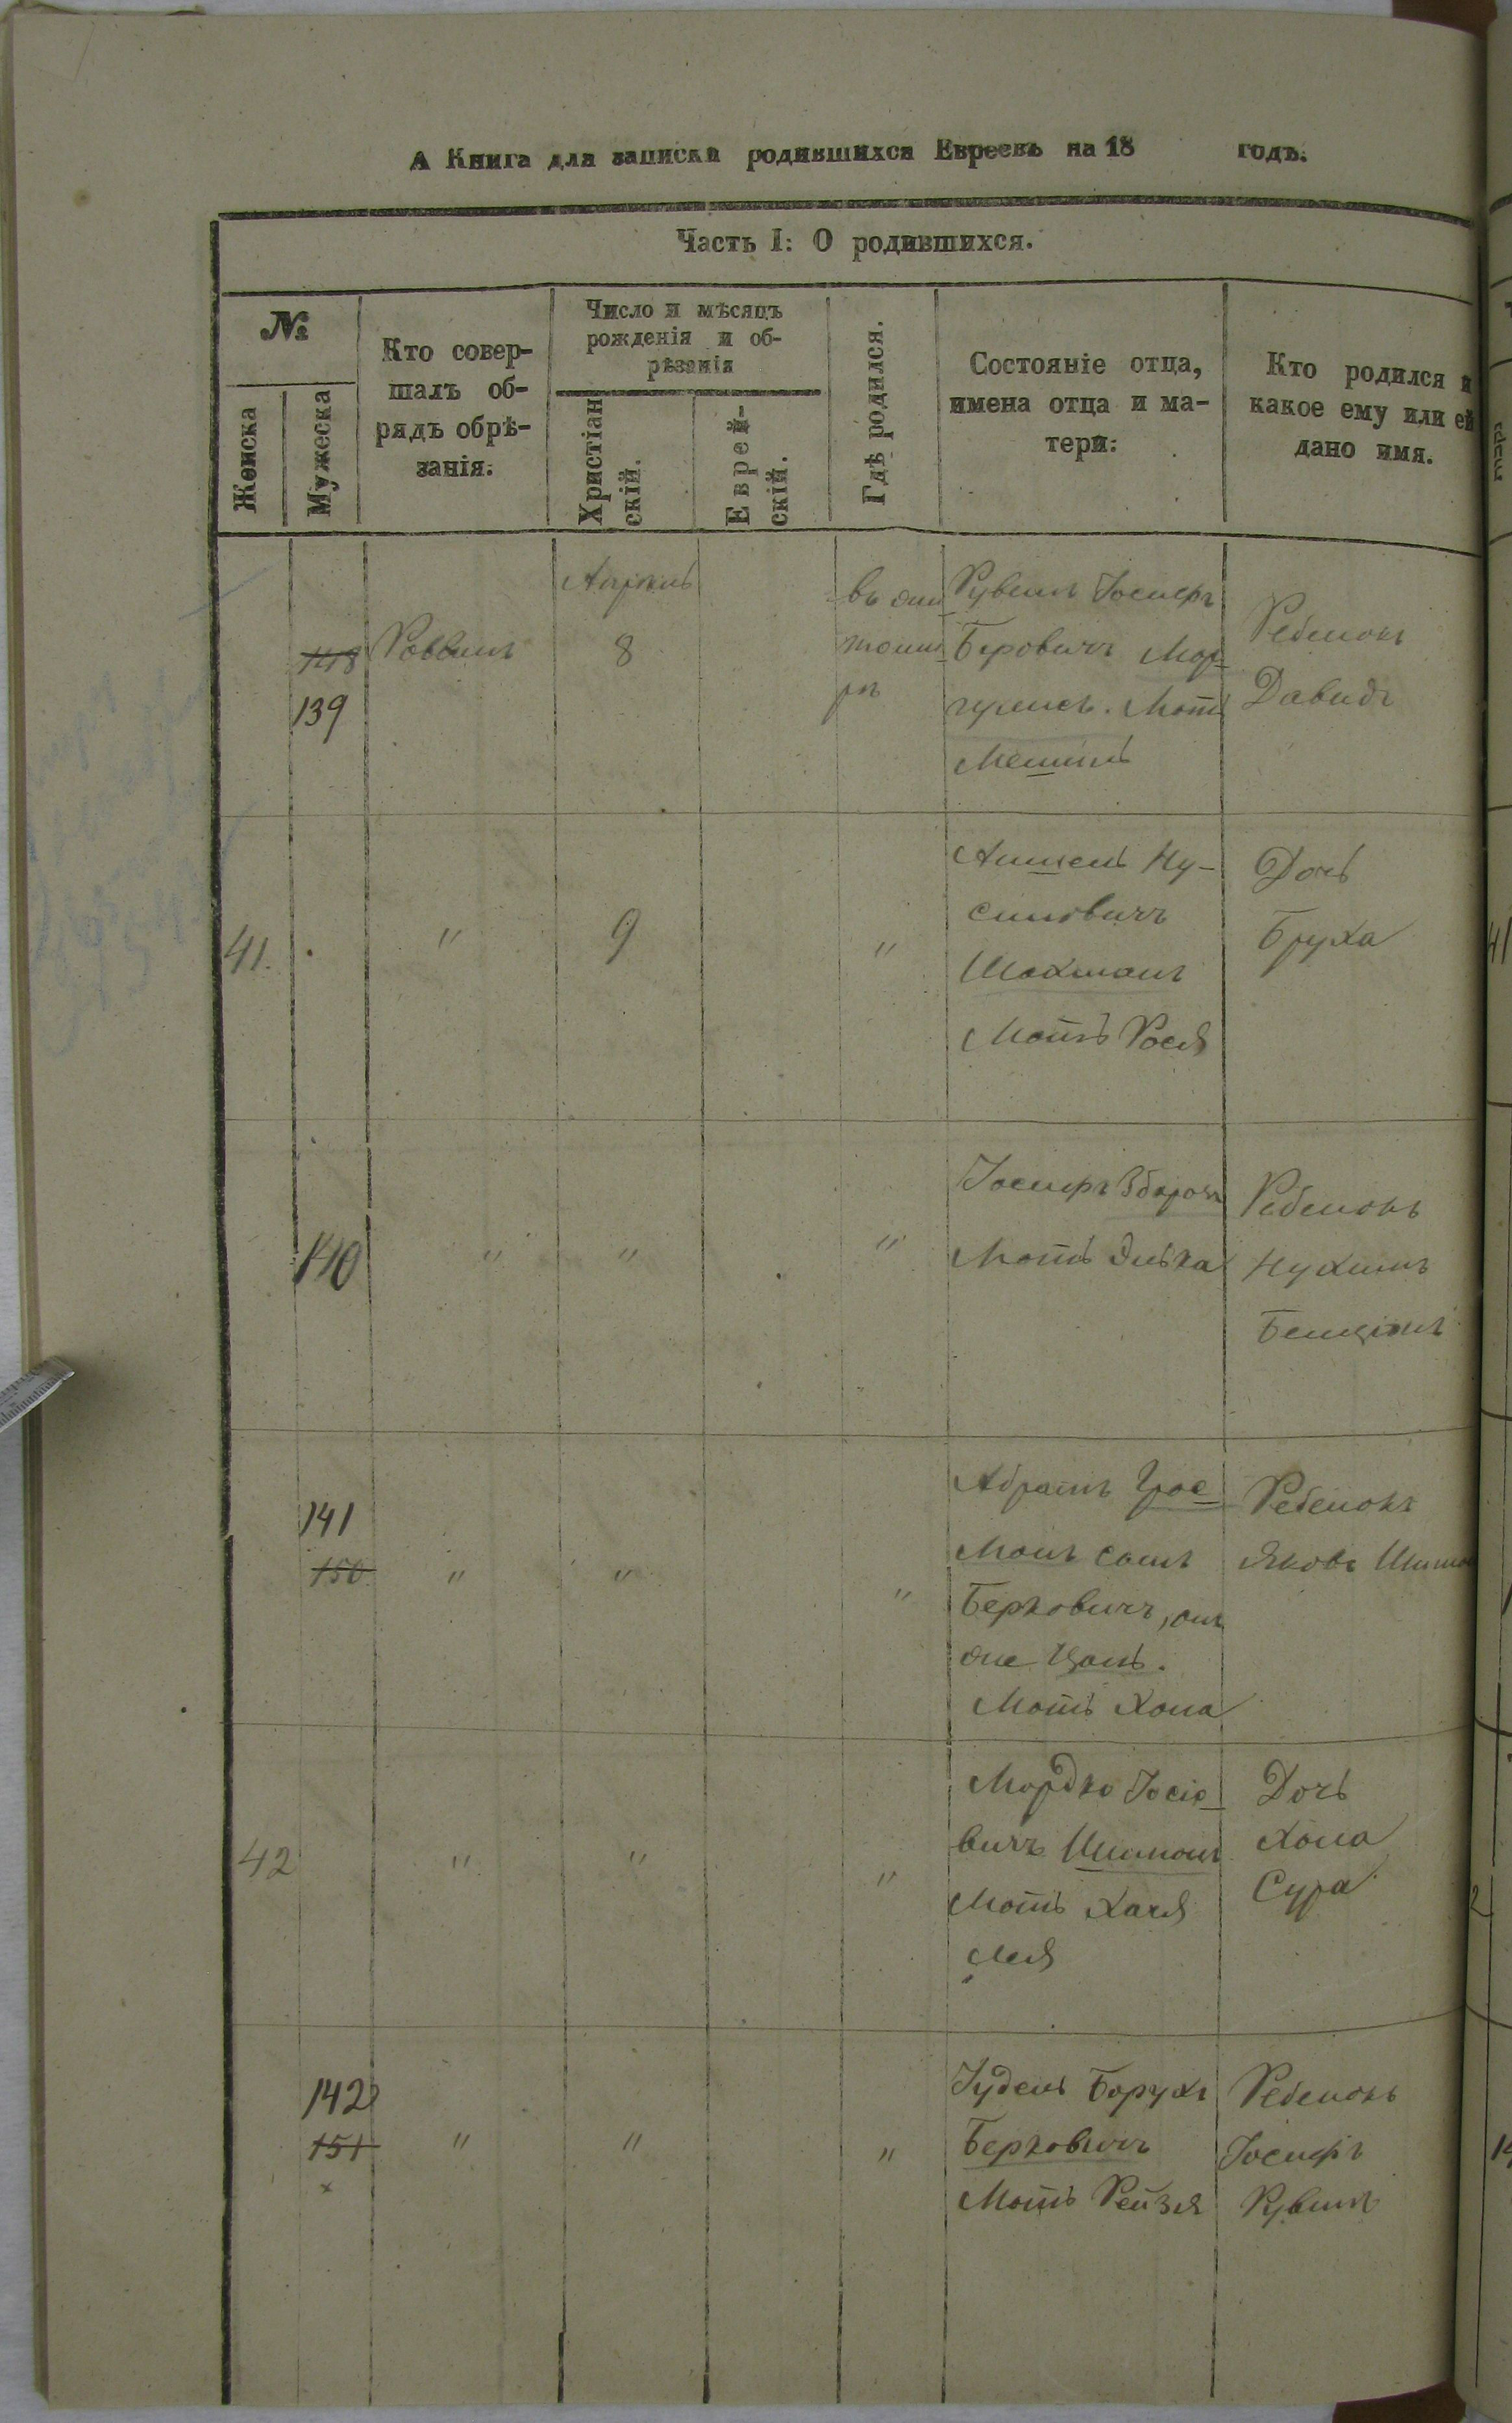 А Книга для записки родившихся Евреевъ на 18 годъ.
Часть I: О родившихся.
№
Женска
Мужеска
Кто совер-
шалъ об-
рядъ обрѣ-
занія.
Число и мѣсяцъ
рожденія и об-
рѣзанія
Христіан
скій.
Еврей-
скій.
Гдѣ родился.
Состояніе отца,
имена отца и ма-
тери.
Кто родился и
какое ему или ей
дано имя.
148
139
Раввинъ
Апрѣль
8
въ Жи
томи
рѣ
Рувинъ Іосифъ
Беровичъ Мар-
гулисъ. Мать
Ребенокъ
Давидъ
41.
"
9
"
Аншель Ну-
симовичъ
Шохманъ
Мать Рося
Дочь
Бруха
140
"
"
"
Іосифъ
Мать Элька
Ребенокъ
Нухимъ
Бенціонъ
141
150
"
"
"
Абрамъ Грос
манъ сынъ
Берковичъ, онъ
же Цань.
Мать Хана
Ребенокъ
Яковъ
42
"
"
"
Мордко Іосіо-
вичъ
Мать Хая
Лея
Дочь
Хана
Сура
142
151
"
"
"
Іудель Борухъ
Берковичъ
Мать Рейзя
Ребенокъ
Іосифъ
Рувинъ